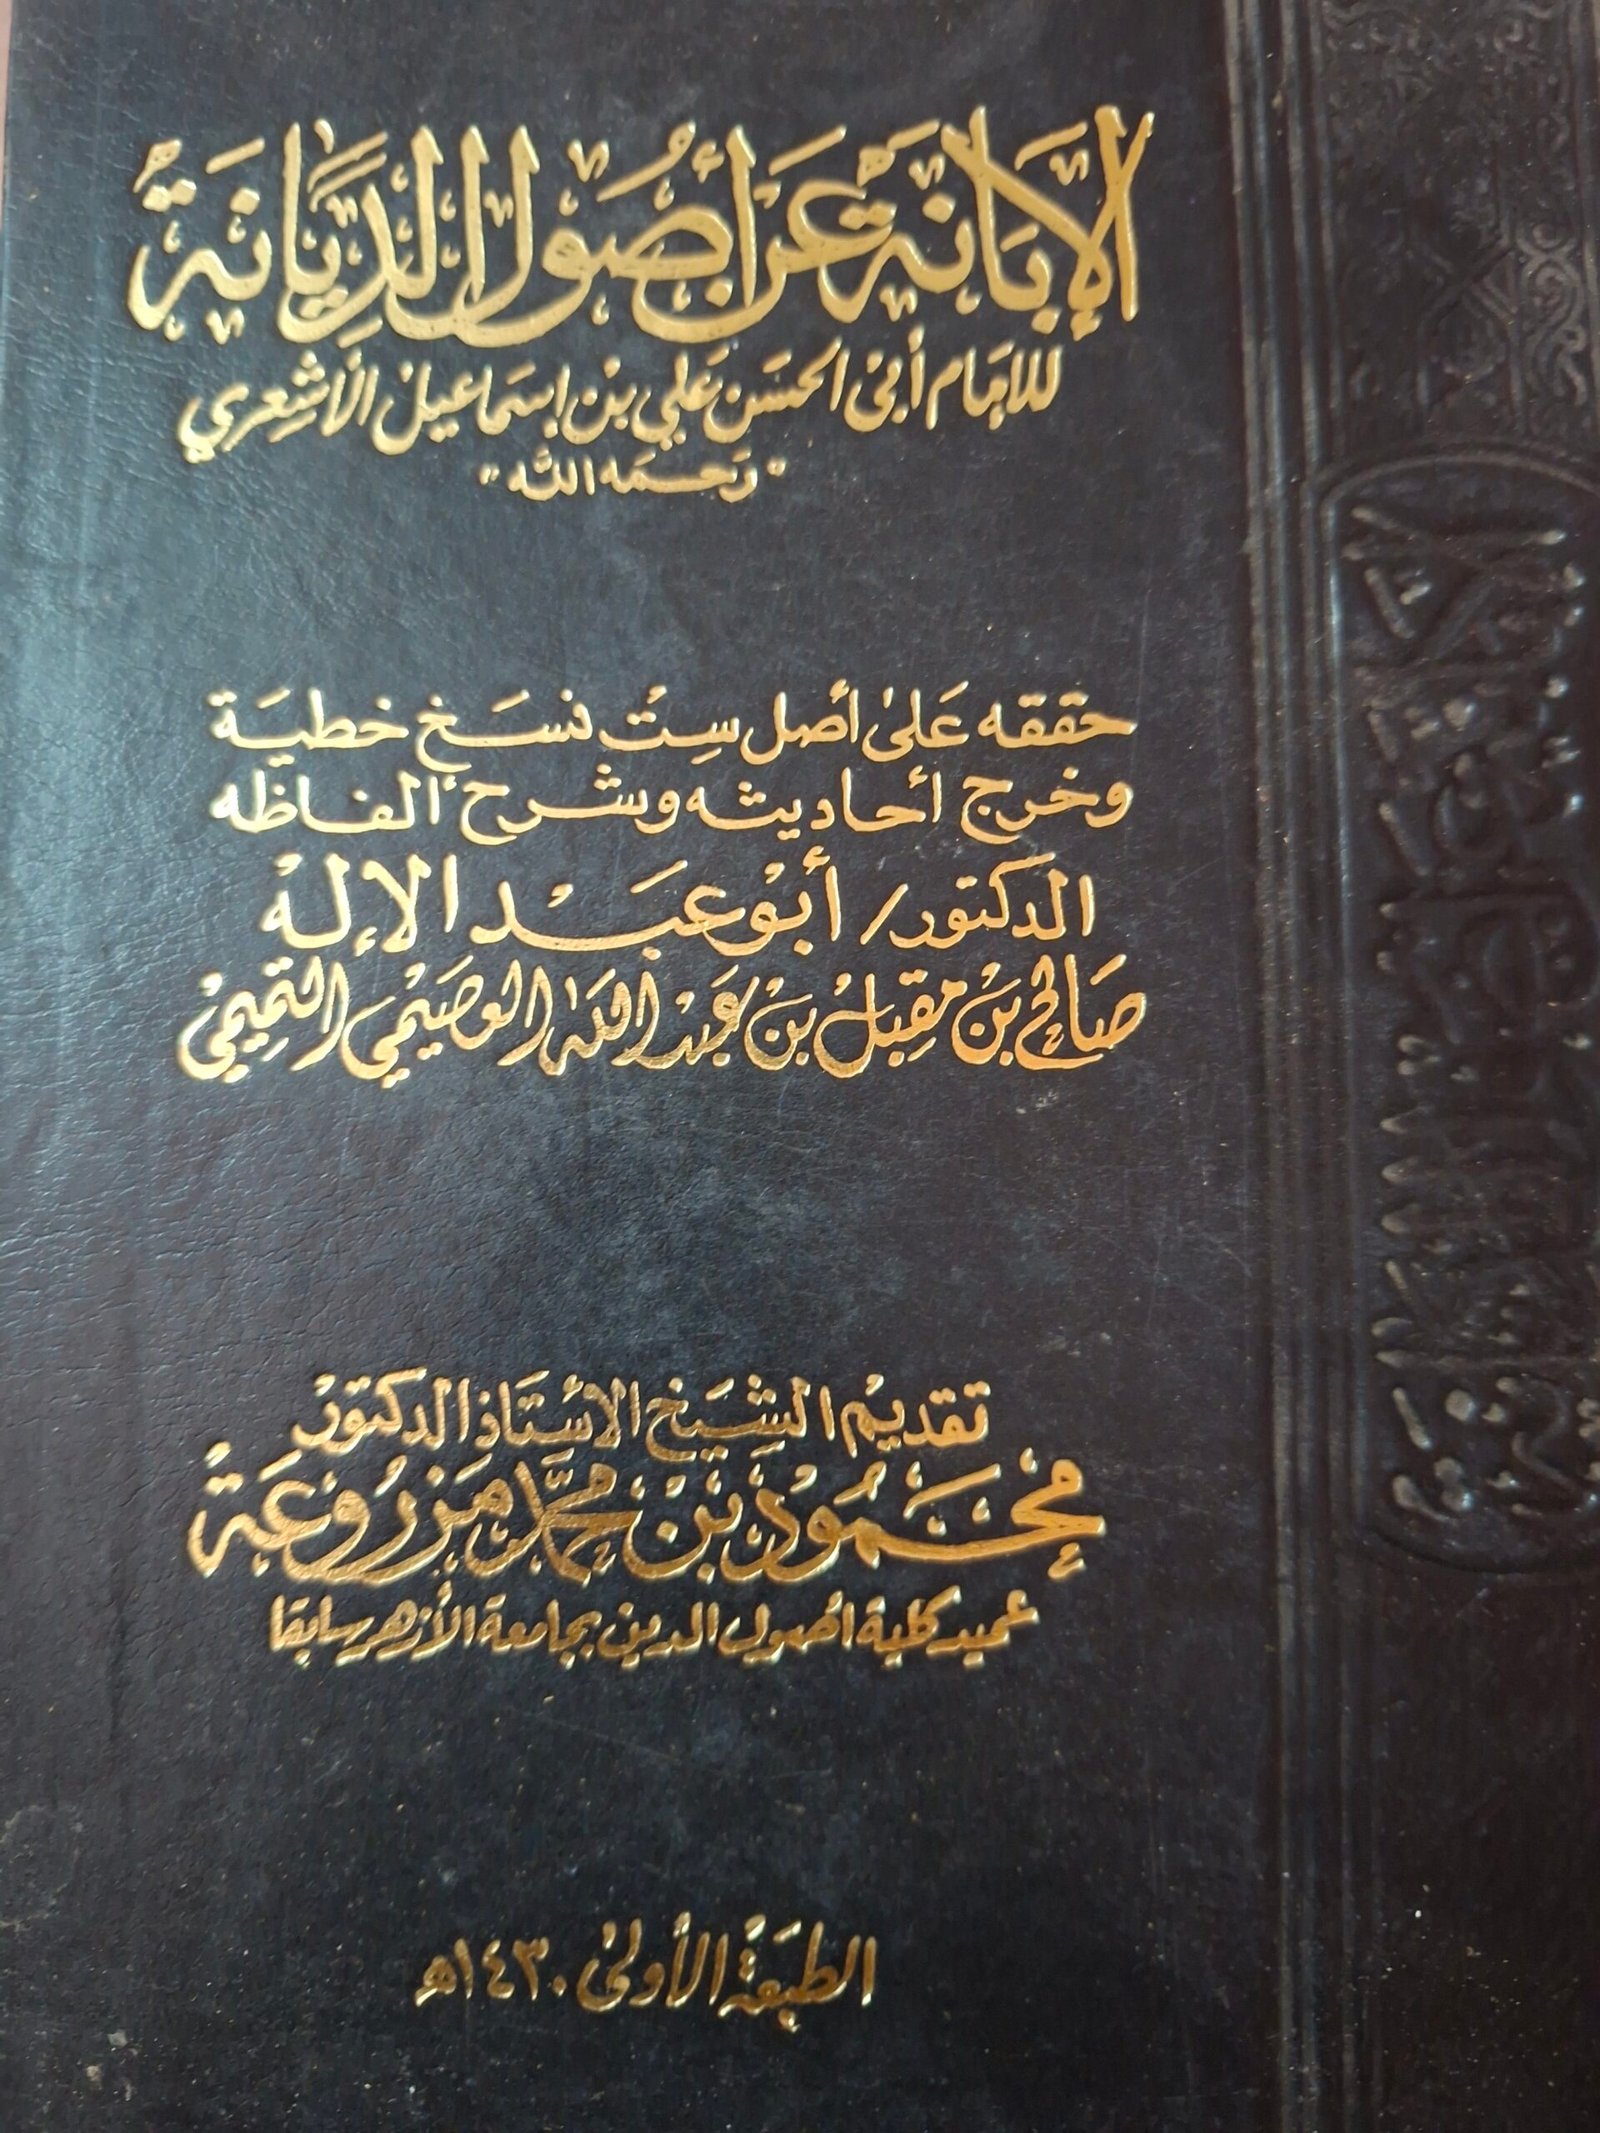 الإِبَانَة عَنْ أُصُولِ الدِّيَانَةُ
للإمام أبي الحسَن عَلي بن إسمَاعيل الأشعِري
"رَحمَه الله"
حققه عَلىٰ أصل سِتْ نسَخ خطيَة
وخرج أحاديثه وشرح ألفاظه
الدكتور/ أبو عبَد الإله
صَالح بن مقبل بن عَبد الله العصَيمي التميمي
تقديم الشيَخ الأستَاذ الدكتور
محَمُود بن محمَّد مَزرُوعَة
عميد كلية أصول الدين بجامعة الأزهر سابقا
الطبعَة الأولىٰ ١٤٣٠هـ